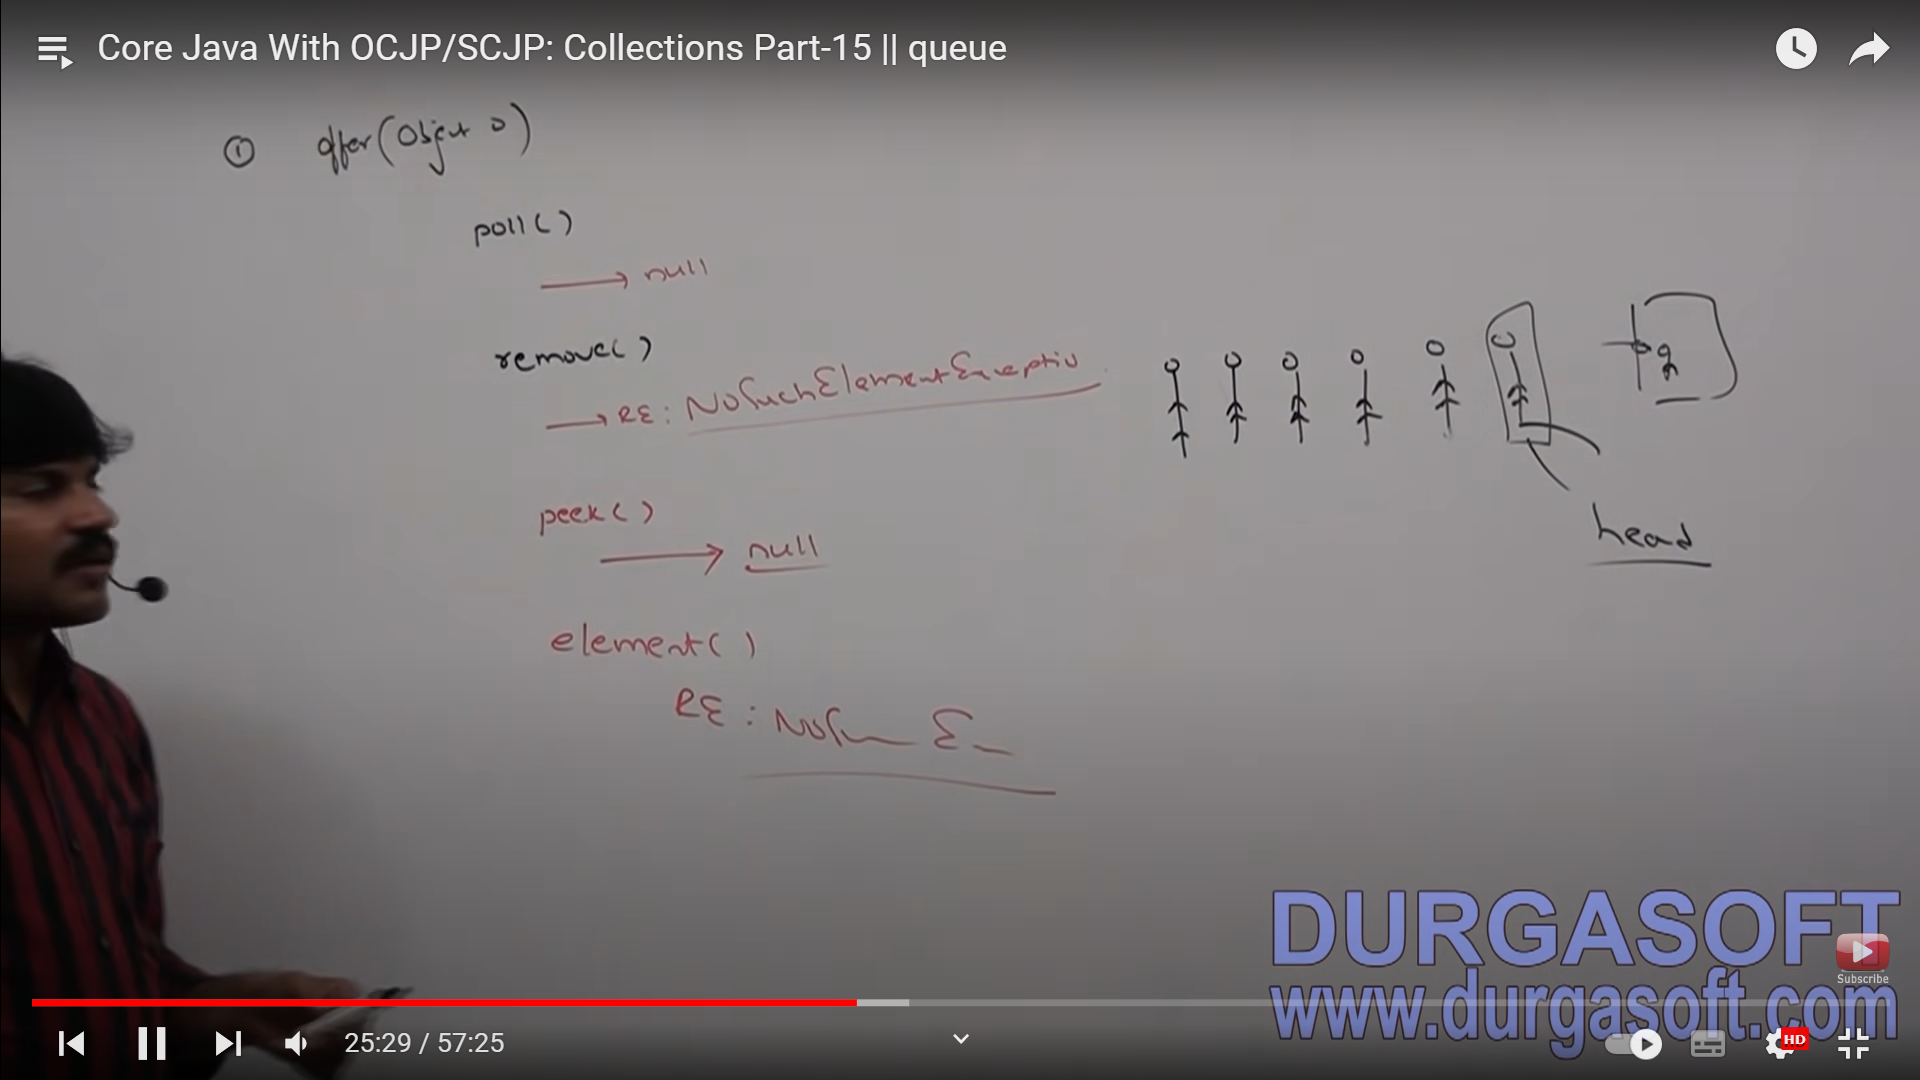 Core Java With OCJP/SCJP: Collections Part-15 || queue
① offer(Object o)
poll( )
→ null
remove( )
→ RE: NoSuchElementExceptio
peek( )
→ null
element( )
RE: NoS E
head
DURGASOFT
www.durgasoft.com
Subscribe
25:29 / 57:25
HD